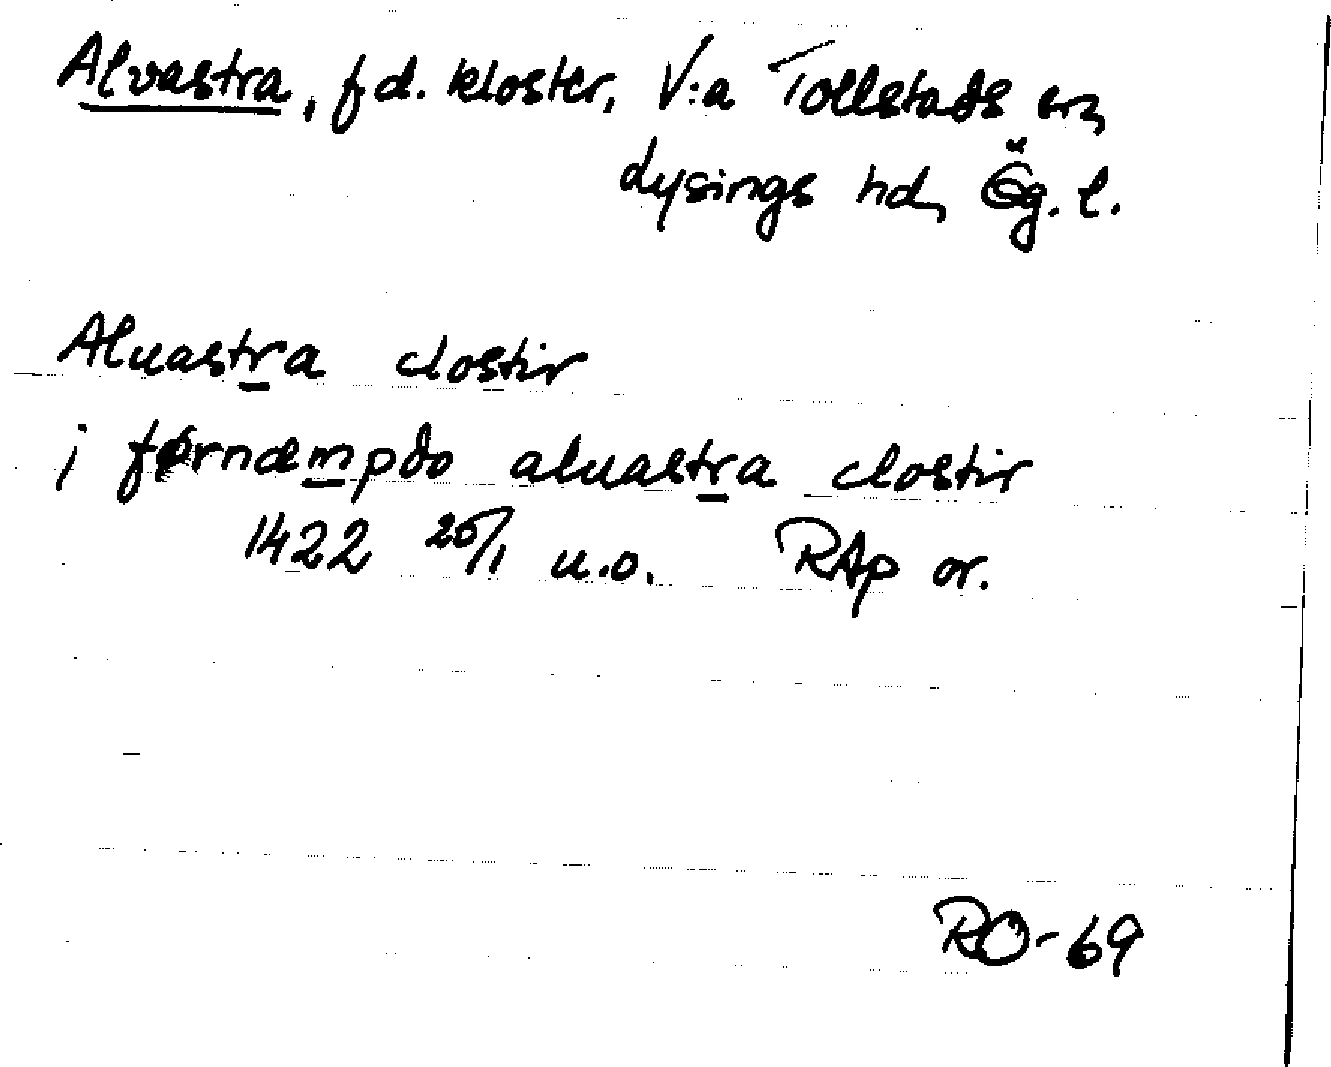 Alvastra, f d. kloster, V:a Tollstads sn,
Lysings hd, Ög. l.
Aluastra clostir
j førnæmpdo aluastra clostir
1422 25/1 u.o. RAp or.
RO-69